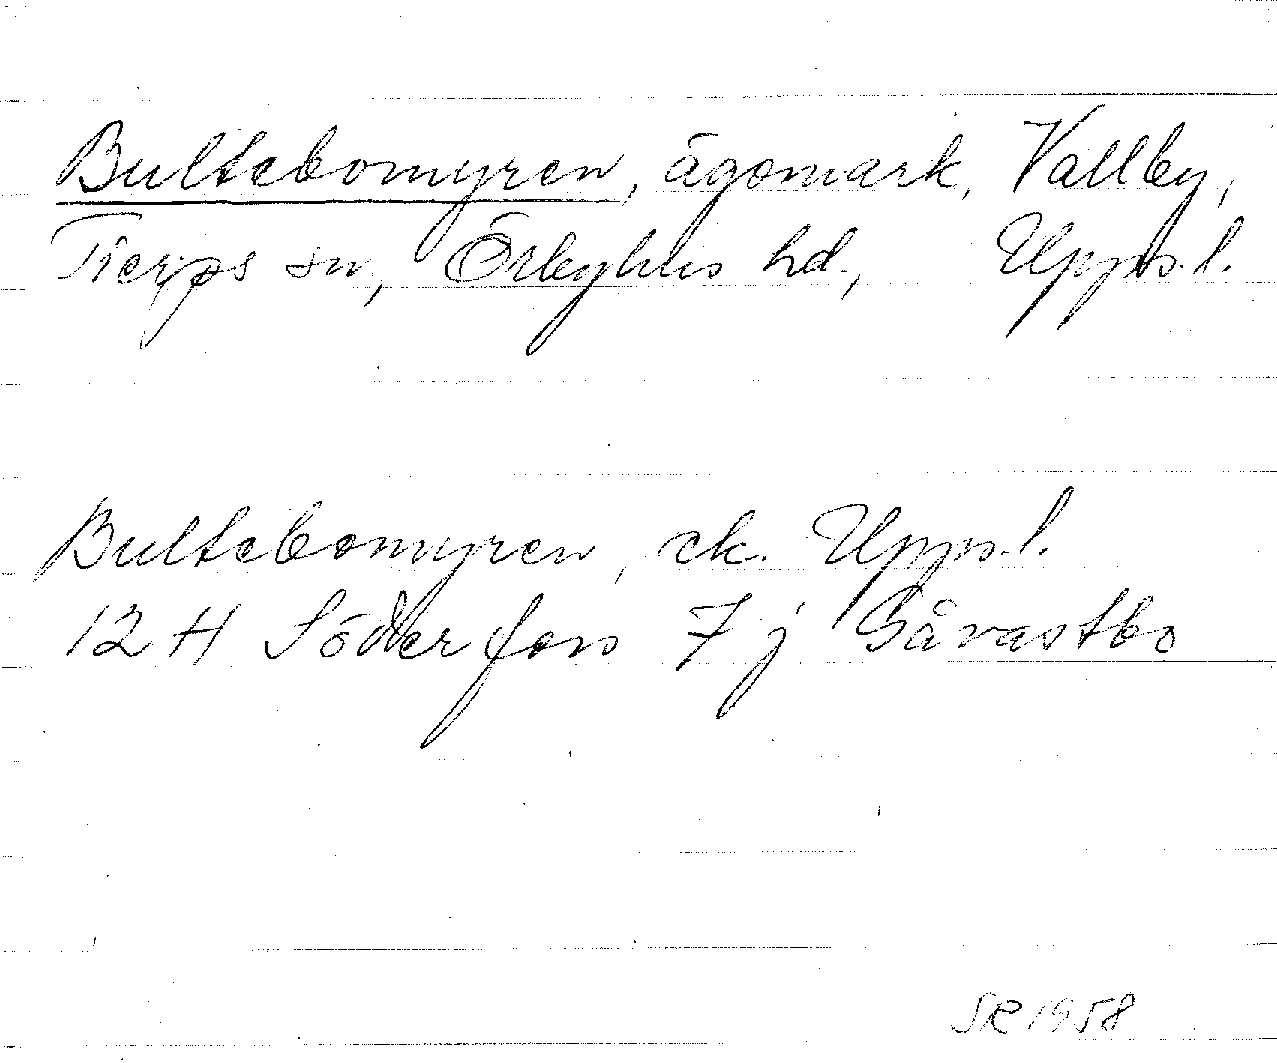 Bultebomyren, ägomark, Vallby,
Tierps sn, Örbyhus hd., Upps.l.
Bultebomyren, ek. Upps.l.
12 H Söderfors 7 j Gåvastbo
SR 1958